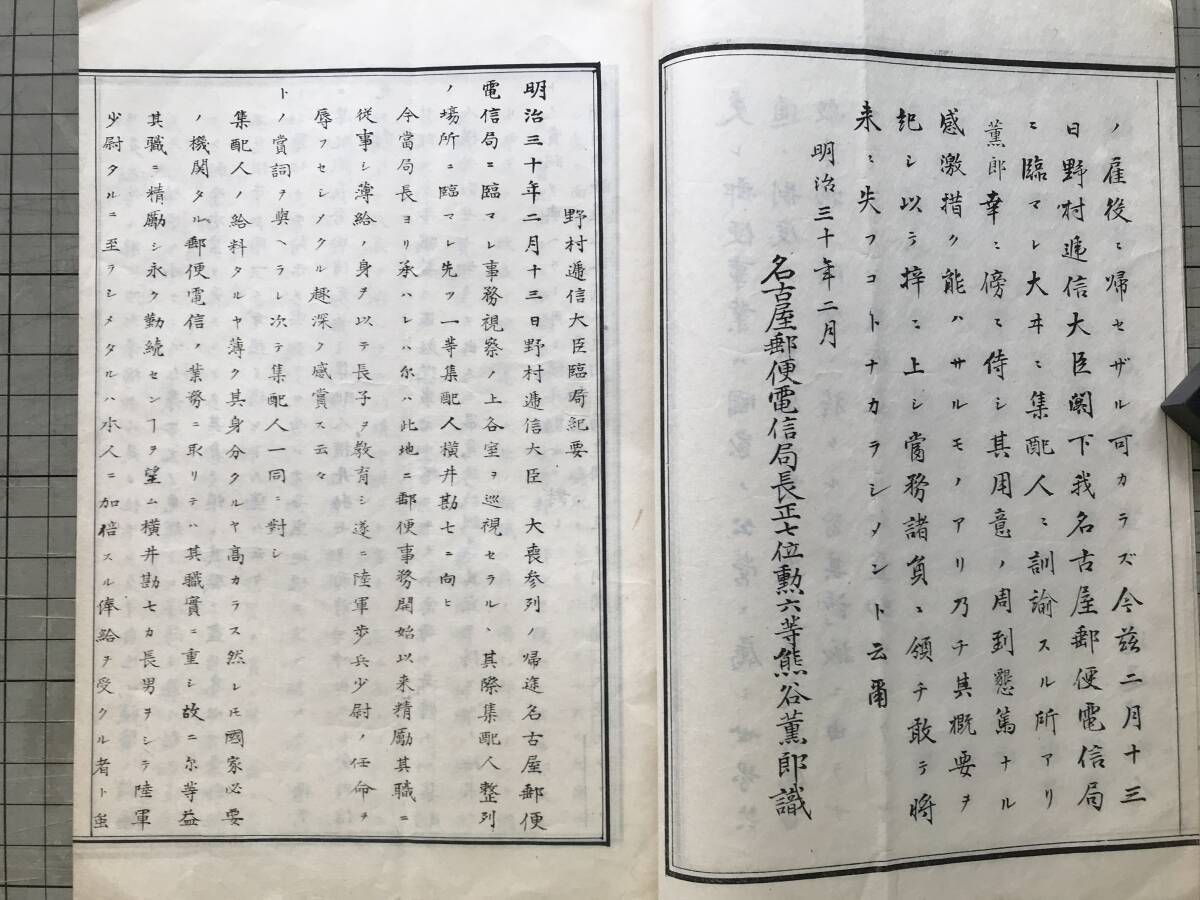 ノ雇後ニ帰セザル可カラズ今茲二月十三
日野村逓信大臣閣下我名古屋郵便電信局
ニ臨マレ大ヰニ集配人ニ訓諭スル所アリ
薫郎幸ニ傍ニ侍シ其用意ノ周到懇篤ナル
感激措ク能ハサルモノアリ乃チ其概要ヲ
記シ以テ梓ニ上シ當務諸負ニ領チ敢テ將
来ニ失フコトナカラシメント云爾
明治三十年二月
名古屋郵便電信局長正七位勲六等熊谷薫郎識
野村逓信大臣臨局紀要
明治三十年二月十三日野村逓信大臣 大喪参列ノ帰途名古屋郵便
電信局ニ臨マレ事務視察ノ上各室ヲ巡視セラル、其際集配人整列
ノ場所ニ臨マレ先ツ一等集配人横井勘七ニ向ヒ
今當局長ヨリ承ハレハ尓ハ此地ニ郵便事務開始以来精勵其職ニ
従事シ薄給ノ身ヲ以テ長子ヲ教育シ遂ニ陸軍歩兵少尉ノ任命ヲ
辱フセシメタル趣深ク感賞ス云々
トノ賞詞ヲ與ヘラレ次テ集配人一同ニ對シ
集配人ノ給料タルヤ薄ク其身分タルヤ高カラス然レㇳモ國家必要
ノ機関タル郵便電信ノ業務ニ取リテハ其職實ニ重シ故ニ尓等益
其職ニ精勵シ永ク勤続センヿヲ望ム横井勘七カ長男ヲシテ陸軍
少尉タルニ至ラシメタルハ本人ニ加倍スル俸給ヲ受クル者ト虽